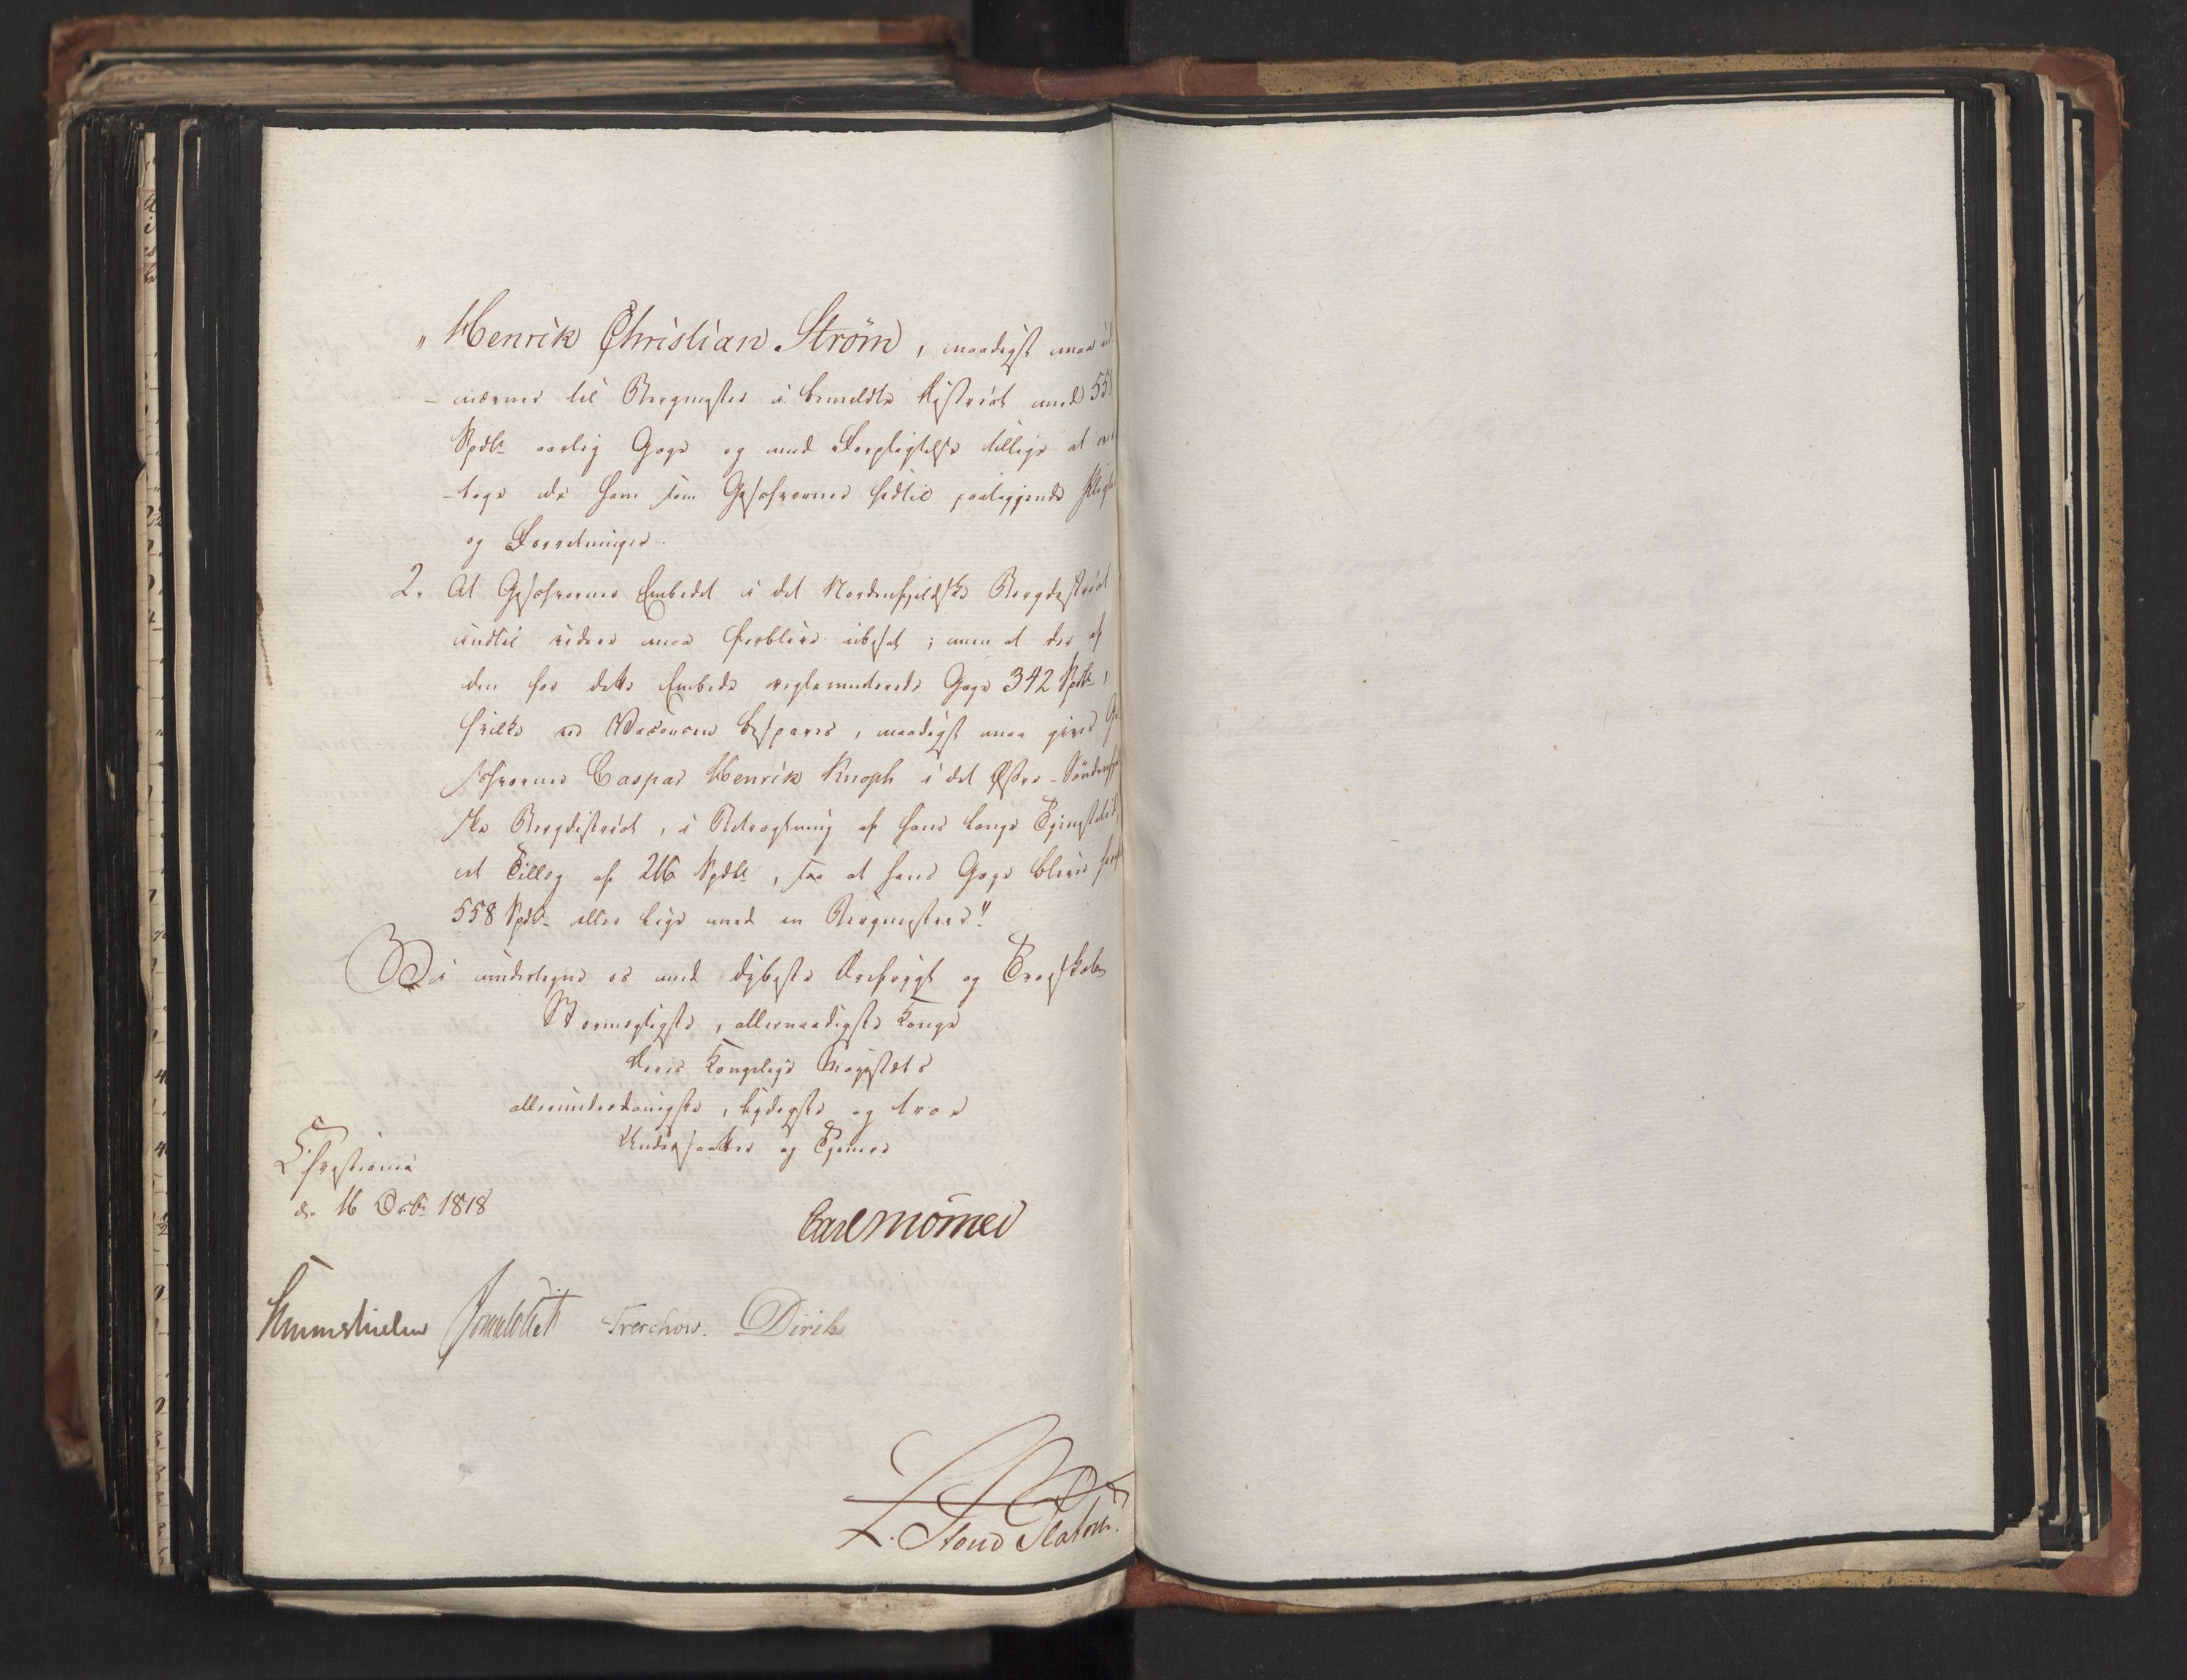 „Henrik Christian Strøm, naadigst maa ud-
-nævnes til Bergmester i bemeldte District med 558
Spdlr aarlig Gage og med Forpligtelse tillige at
-tage de ham som Geschworner hidtil paaliggende Pligter
og Forretninger.
2. At Geschworner Embedet i det Nordenfjeldske Bergdistrict
indtil videre maa forblive ubesat; men at der af
den for dette Embede reglementerede Gage 342 Spdlr,
hvilke ved Vacancen bespares, naadigst maa gives Ge-
schworner Caspar Henrik Knoph i det Østre-Søndenfjeld-
ske Bergdistrict, i Betragtning af hans lange Tjenestetid,
et Tillæg af 216 Spdlr, saa at hans Gage bliver
558 Spdlr eller lige med en Bergmesters“.
Vi undertegne os med dybeste Ærefrygt og Troeskab
Stormægtigste, allernaadigste Konge
Deres Kongelige Majestæts
allerunderdanigste, lydigste og troe
Undersaatter og Tjenere
Christiania
d. 16 Octbr 1818
Carl Mörner
Hummerhielm Sommerfeldt Treschow. Diriks
L. Stoud Platou.